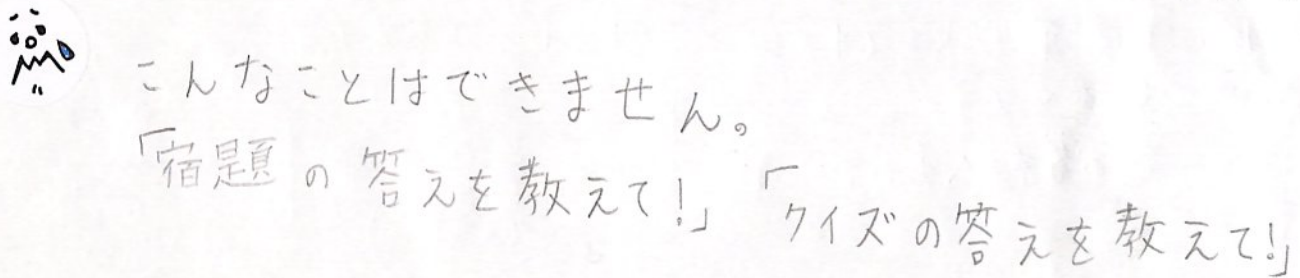 こんなことはできません。
「宿題の答えを教えて!」「クイズの答えを教えて!」